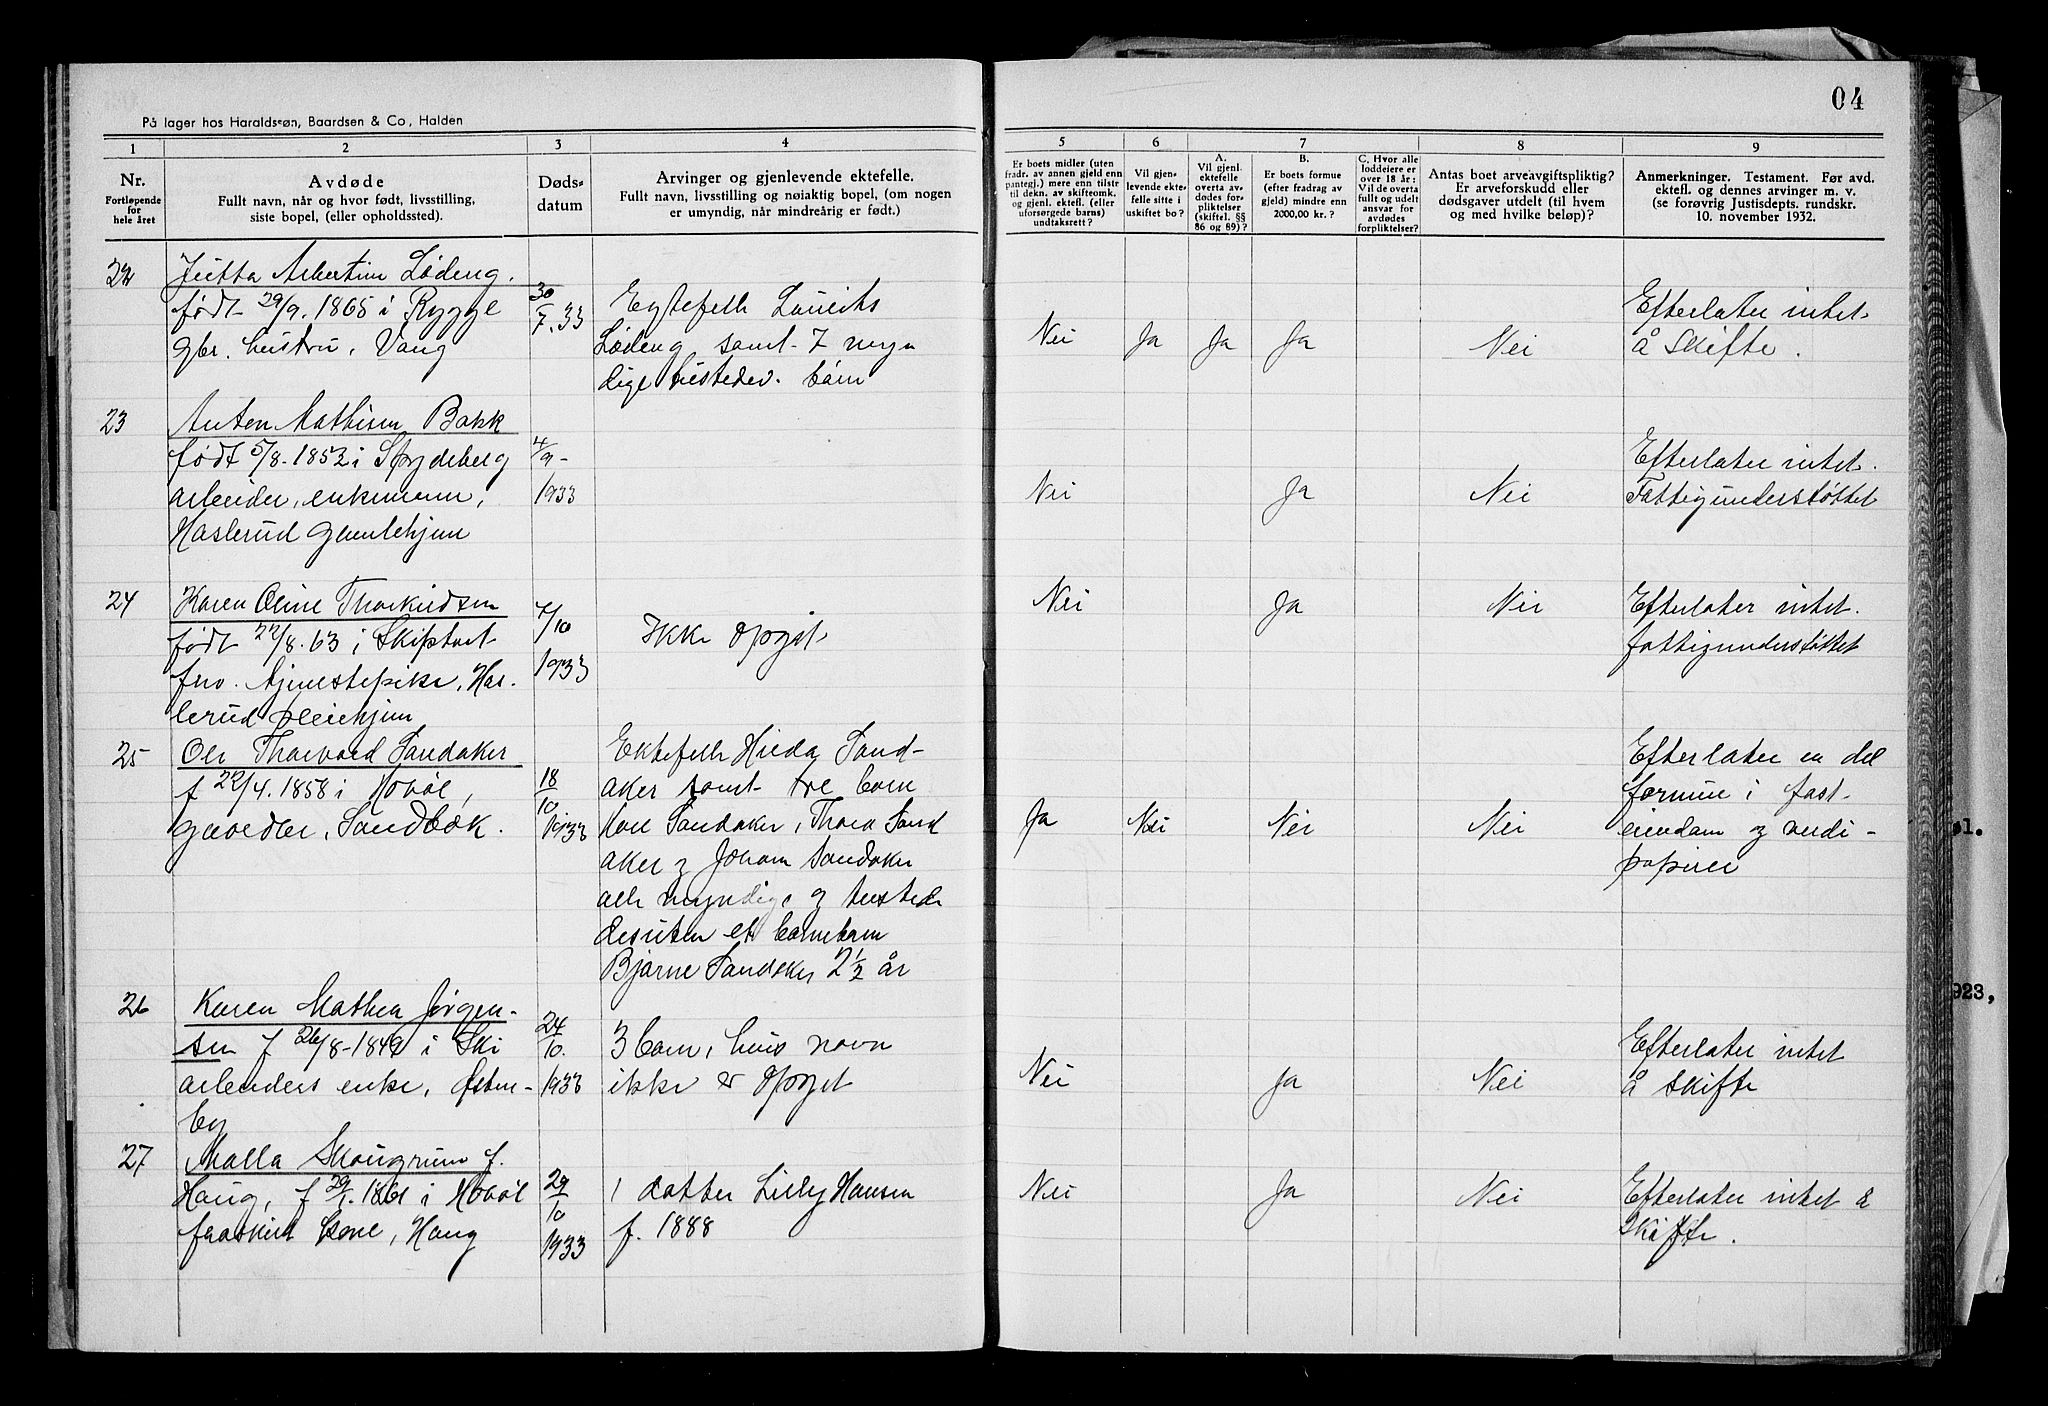 04
På lager hos Haraldssøn, Baardsen & Co, Halden
1 2 3 4 5 6 7 8 9
Nr.
Fortløpende
for
hele året
Avdøde
Fullt navn, når og hvor født, livsstilling,
siste bopel, (eller opholdssted).
Døds-
datum
Arvinger og gjenlevende ektefelle.
Fullt navn, livsstilling og nøiaktig bopel, (om nogen
er umyndig, når mindreårig er født.)
Er boets midler (uten
fradr. av annen gjeld enn
pantegj.) mere enn tilstr
til dekn. av skifteomk.
og gjenl. ektef. (eller
uforsørgede barns)
undtaksrett?
Vil gjen-
levende ekte-
felle sitte i
uskiftet bo?
A.
Vil gjenl.
ektefelle
overta av-
dødes for-
pliktelser
(skiftel. §§
86 og 89)?
B.
Er boets formue
(efter fradrag av
gjeld) mindre enn
2000,00 kr. ?
C. Hvor alle
loddeiere er
over 18 år :
Vil de overta
fullt og udelt
ansvar for
avdødes
forpliktelser?
Antas boet arveavgiftspliktig?
Er arveforskudd eller
dødsgaver utdelt (til hvem
og med hvilke beløp)?
Anmerkninger. Testament. Før avd.
ektefl. og dennes arvinger m. v.
(se forøvrig Justisdepts. rundskr.
10. november 1932.
22
Jutta Albertine Lødeng.
født 29/9. 1865 i Rygge
gbr. hustru, Vang
30
/7. 33
Egtefelle Laurits
Lødeng samt 7 myn
dige tilstedev. barn
Nei Ja Ja Ja Nei
Efterlater intet
å skifte.
23
Anton Mathisen Bakk
født 5/8. 1852 i Spydeberg
arbeider, enkemann,
Haslerud gamlehjem
4/9-
1933
Nei Ja Nei
Efterlater intet.
Fattigunderstøttet
24
Karen Oline Thorkildsen
født 22/8. 63 i Skiptvet
frv. tjenestepike, Has-
lerud pleiehjem
7/10
1933
Ikke opgit
Nei Ja Nei
Efterlater intet.
fattigunderstøttet
25
Ole Thorvald Sandaker
f 22/4. 1858 i Hobøl,
gaardbr, Sandbæk.
18
/10
1933
Ektefelle Hilda Sand-
aker samt tre barn
Karl Sandaker, Thora Sand
aker og Johan Sandaker
alle myndige og tilstede
desuten et barnebarn
Bjarne Sandaker 2½ år
Ja Nei Nei Nei
Efterlater en del
formue i fast-
eiendom og verdi-
papirer
øl.
923,
26
Karen Mathea Jørgen-
sen f 26/8-1849 i Ski
arbeiders enke, Østen-
by
24
/10.
1933
3 barn, hvis navn
ikke er opgit
Nei Ja Nei
Efterlater intet
å skifte
27
Malla Skaugrum f.
Haug, f 29/1. 1861 i Hobøl
fraskilt kone, Haug
29
/10
1933
1 datter Lilly Hansen
f. 1888
Nei Ja Nei
Efterlater intet å
skifte.